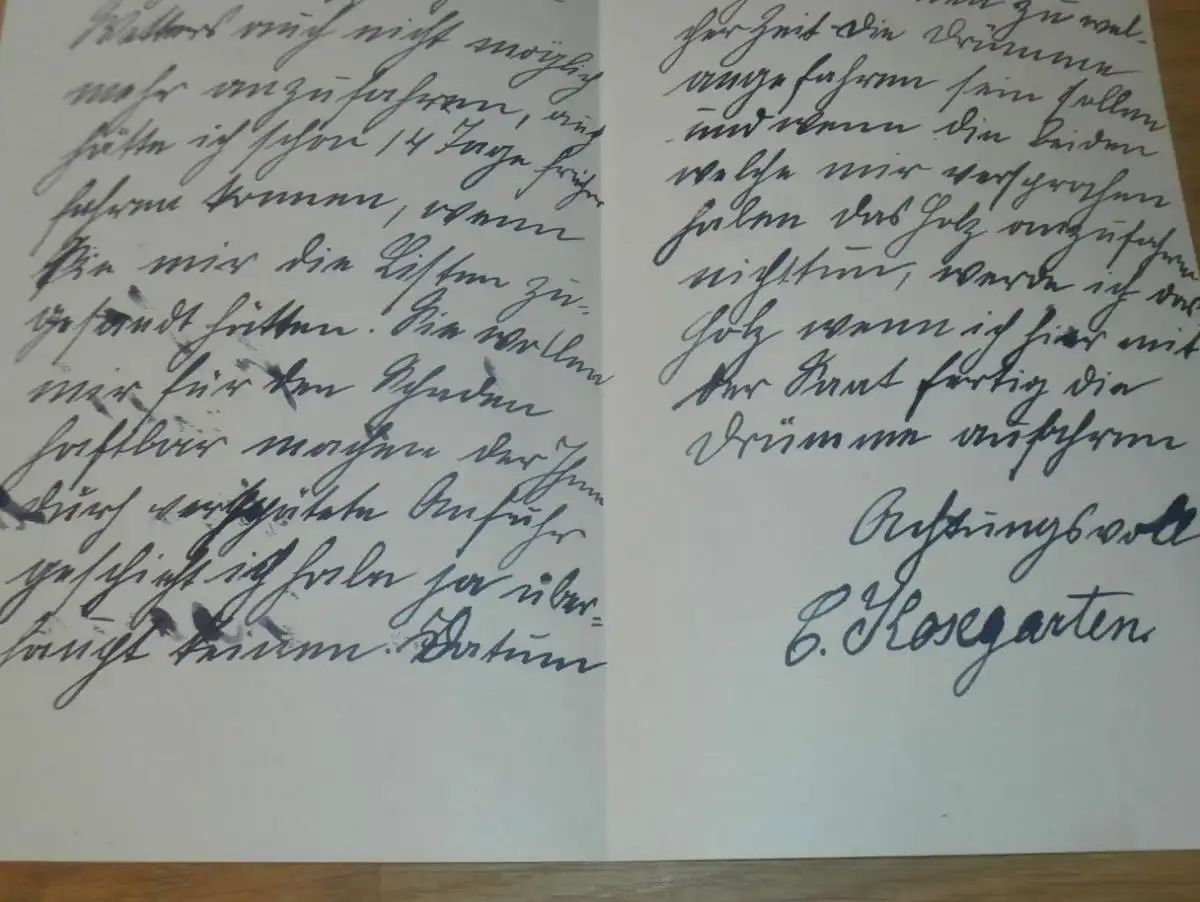 Wetters auch nicht möglich
mehr anzufahren, auch
hätte ich schon 14 Tage früher
fahren können, wenn
Sie mir die Listen zu-
gesandt hätten. Sie wollen
mir für den Schaden
haftbar machen der Ihnen
durch verspätete Anfuhr
geschieht ich habe ja über-
haupt keinen. Datum
zu wel-
cher Zeit die Drümme
angefahren sein sollen
und wenn die beiden
welche mir versprochen
haben das Holz anzufahren
nicht tun, werde ich das
Holz wenn ich hier mit
der Saat fertig die
Drümme anfahren
Achtungsvoll
C. Kosegarten.